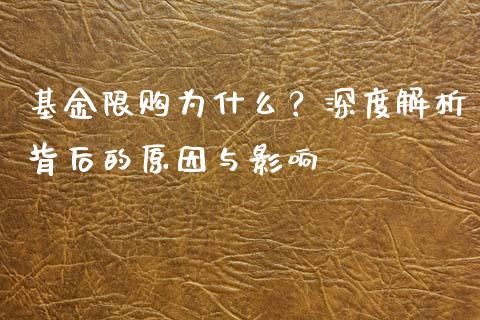 基金限购为什么？深度解析
背后的原因与影响